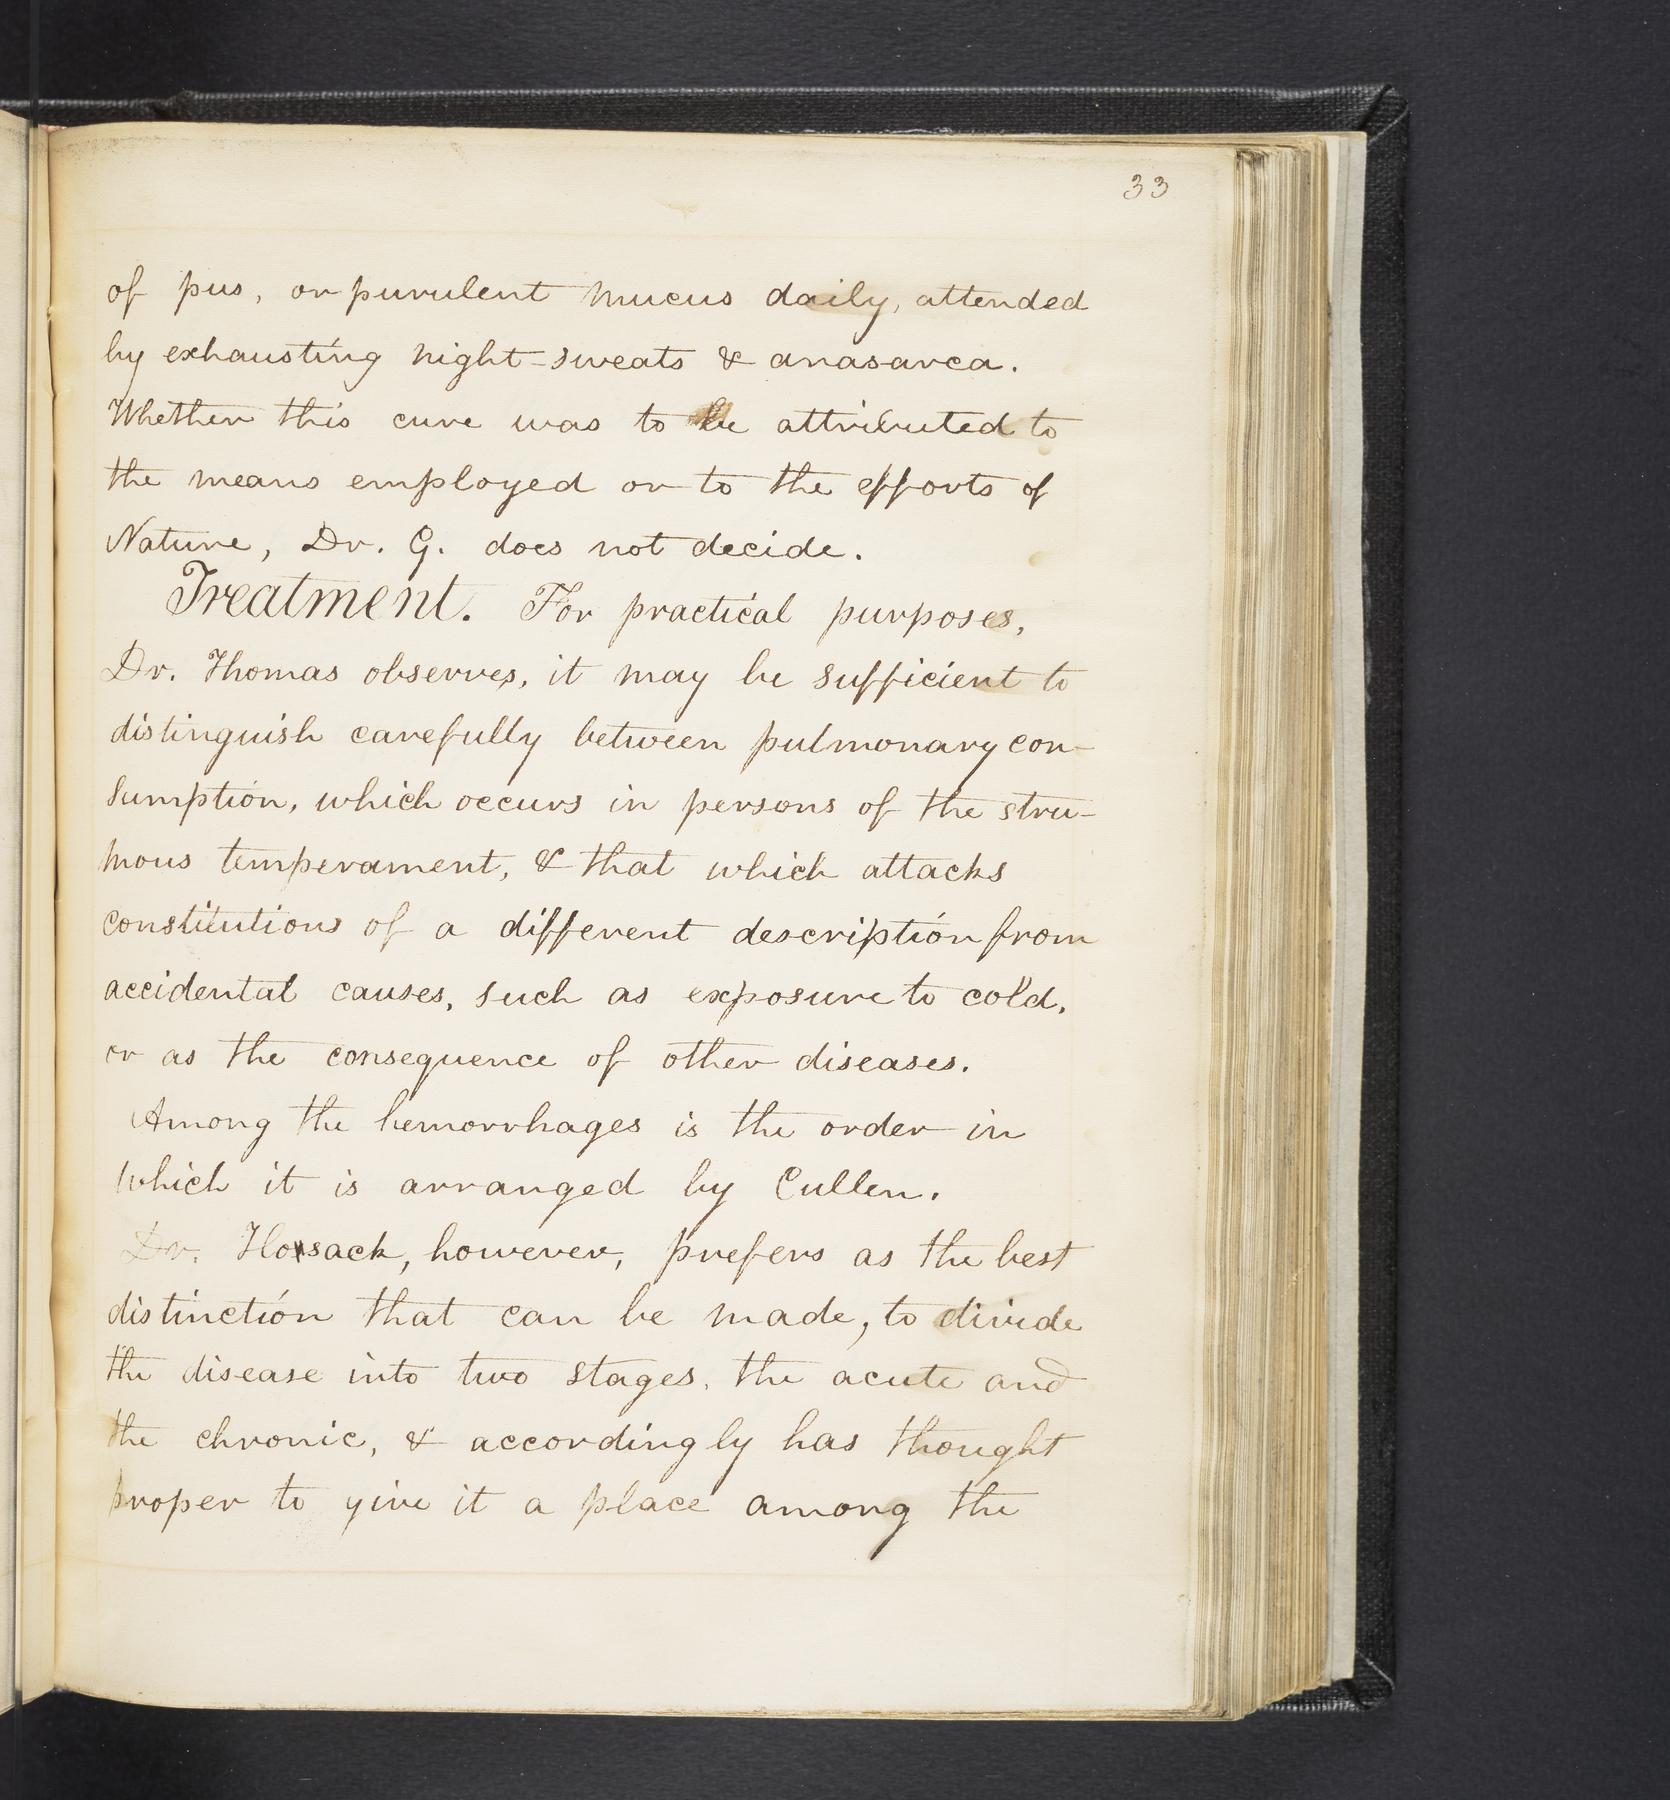 33
of pus, or purulent mucus daily, attended
by exhausting night-sweats & anasarca.
Whether this cure was to be attributed to
the means employed or to the efforts of
Nature, Dr. G. does not decide.
Treatment. For practical purposes,
Dr. Thomas observes, it may be sufficient to
distinguish carefully between pulmonary con-
sumption, which occurs in persons of the stru-
mous temperament, & that which attacks
constitutions of a different description from
accidental causes, such as exposure to cold,
or as the consequence of other diseases.
Among the hemorrhages is the order in
which it is arranged by Cullen.
Dr. Hossack, however, prefers as the best
distinction that can be made, to divide
the disease into two stages, the acute and
the chronic, & accordingly has thought
proper to give it a place among the